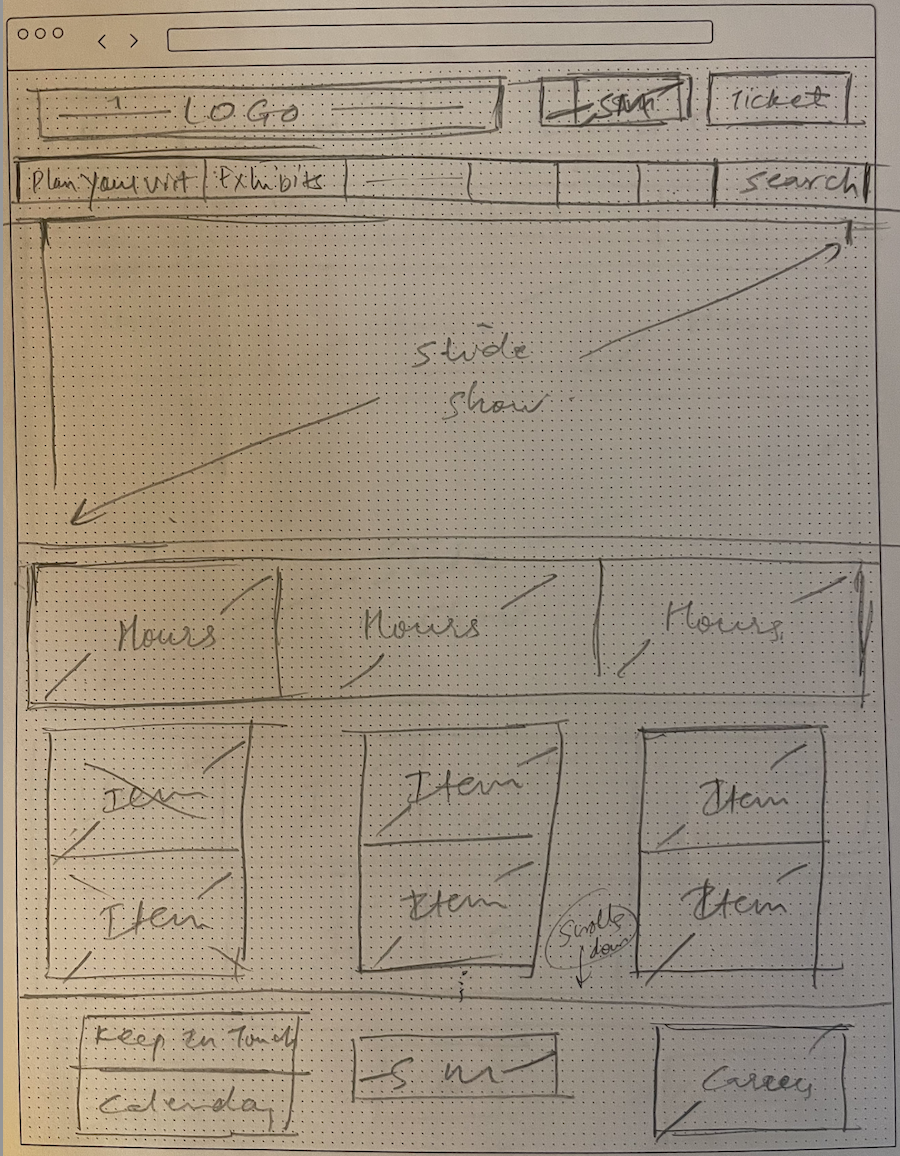 LOGO
Ticket
Plan Your visit
Exhibits
Search
Slide
show
Hours
Hours
Hours
Item
Item
Item
Item
Item
Item
Scrolls
down
Keep In Touch
S m
Calendar
Career